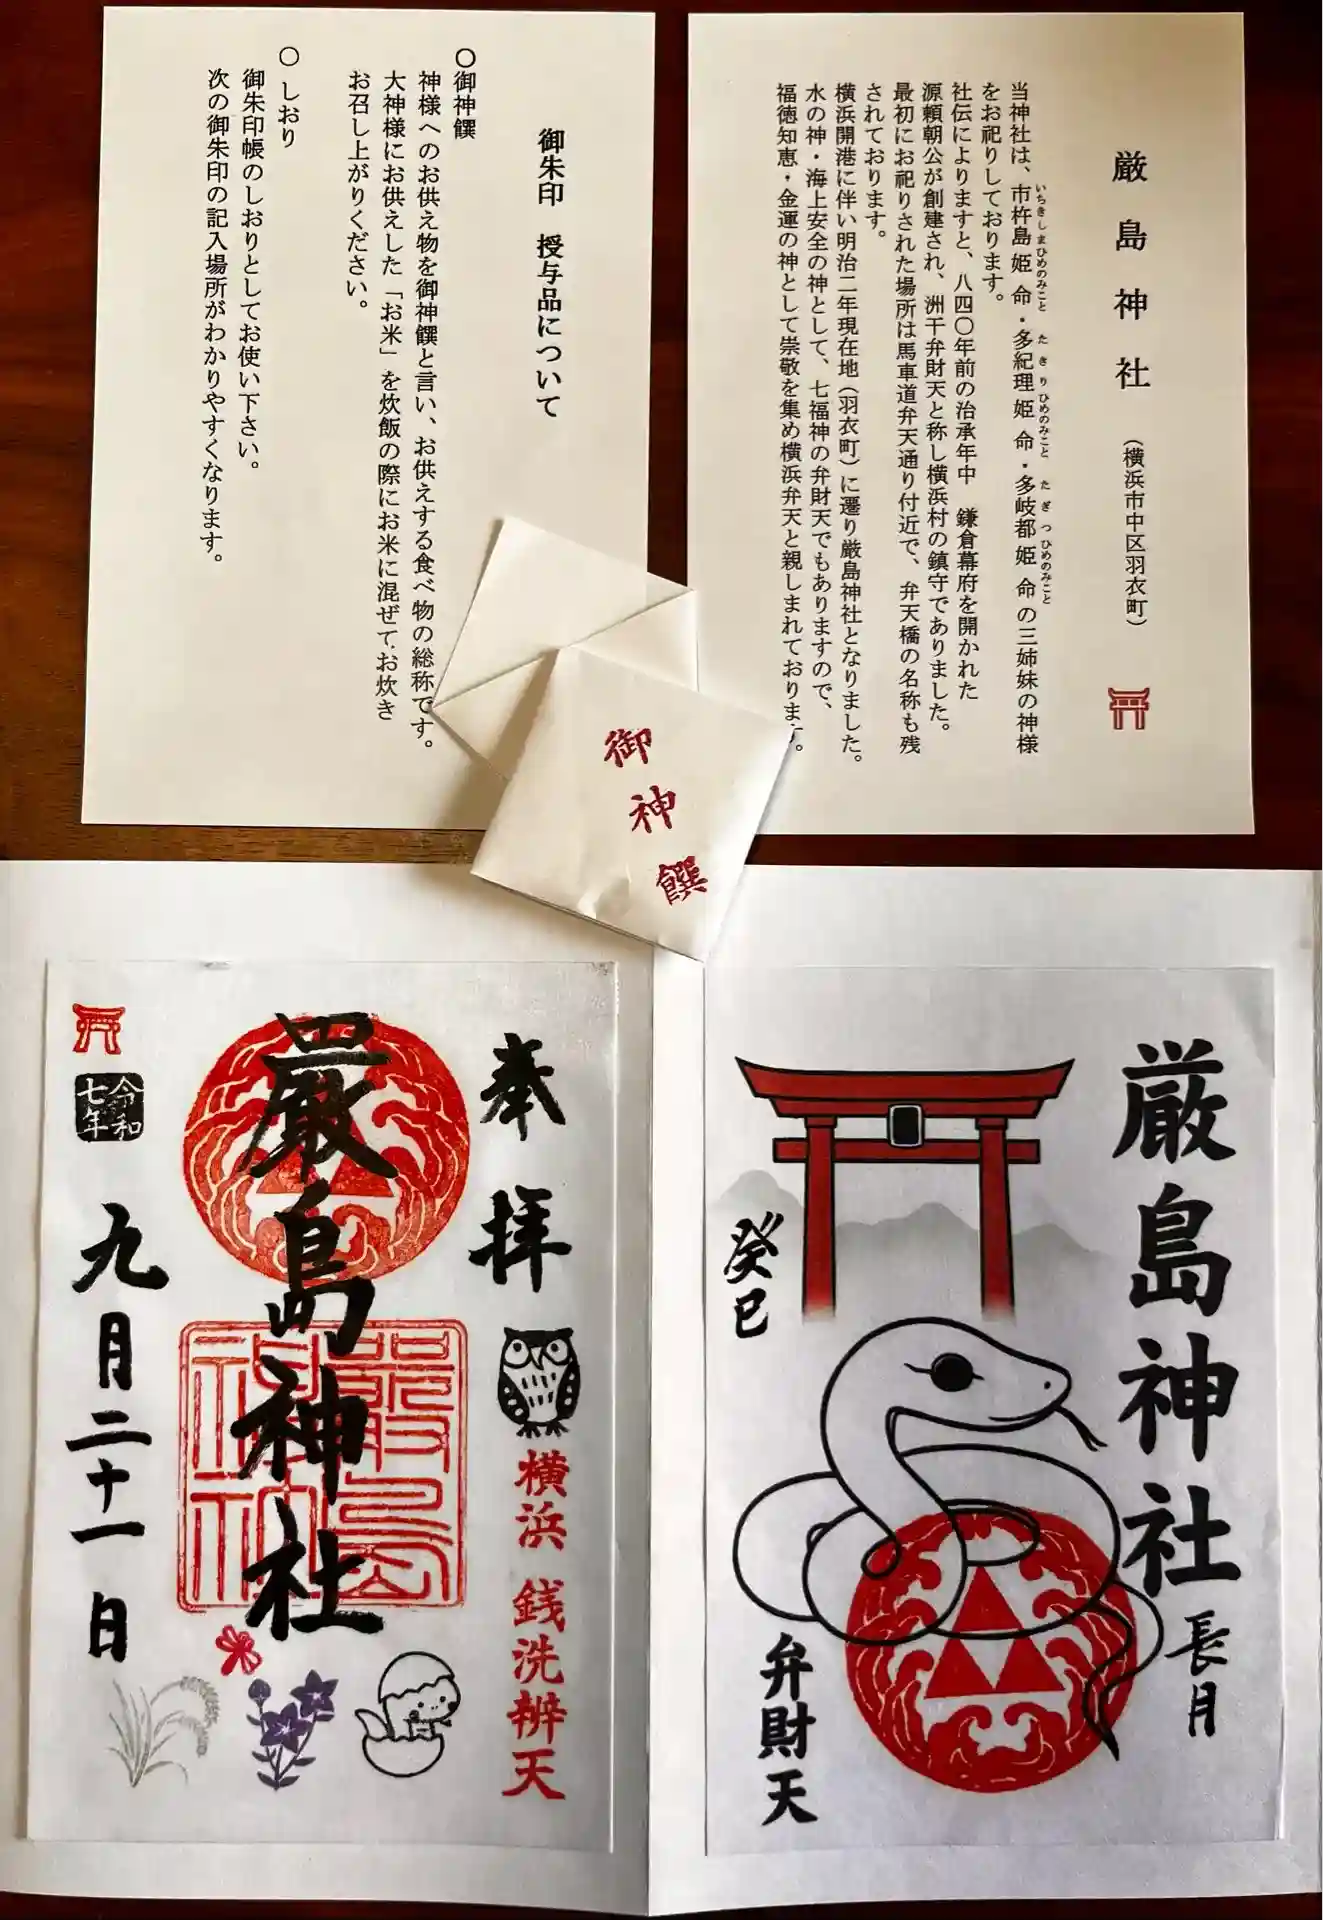 厳島神社
（横浜市中区羽衣町）
いちきしまひめのみこと　たきりひめのみこと　たぎつひめのみこと
当神社は、市杵島姫命・多紀理姫命・多岐都姫命の三姉妹の神様
をお祀りしております。
社伝によりますと、八四〇年前の治承年中　鎌倉幕府を開かれた
源頼朝公が創建され、洲干弁財天と称し横浜村の鎮守でありました。
最初にお祀りされた場所は馬車道弁天通り付近で、弁天橋の名称も残
されております。
横浜開港に伴い明治二年現在地（羽衣町）に遷り厳島神社となりました。
水の神・海上安全の神として、七福神の弁財天でもありますので、
福徳知恵・金運の神として崇敬を集め横浜弁天と親しまれております。
御朱印　授与品について
〇御神饌
神様へのお供え物を御神饌と言い、お供えする食べ物の総称です。
大神様にお供えした「お米」を炊飯の際にお米に混ぜてお炊き
お召し上がりください。
〇しおり
御朱印帳のしおりとしてお使い下さい。
次の御朱印の記入場所がわかりやすくなります。
御神饌
厳島神社
長月
癸巳
弁財天
奉拝
横浜　銭洗辨天
嚴島神社
嚴島神社
令和七年
九月二十一日